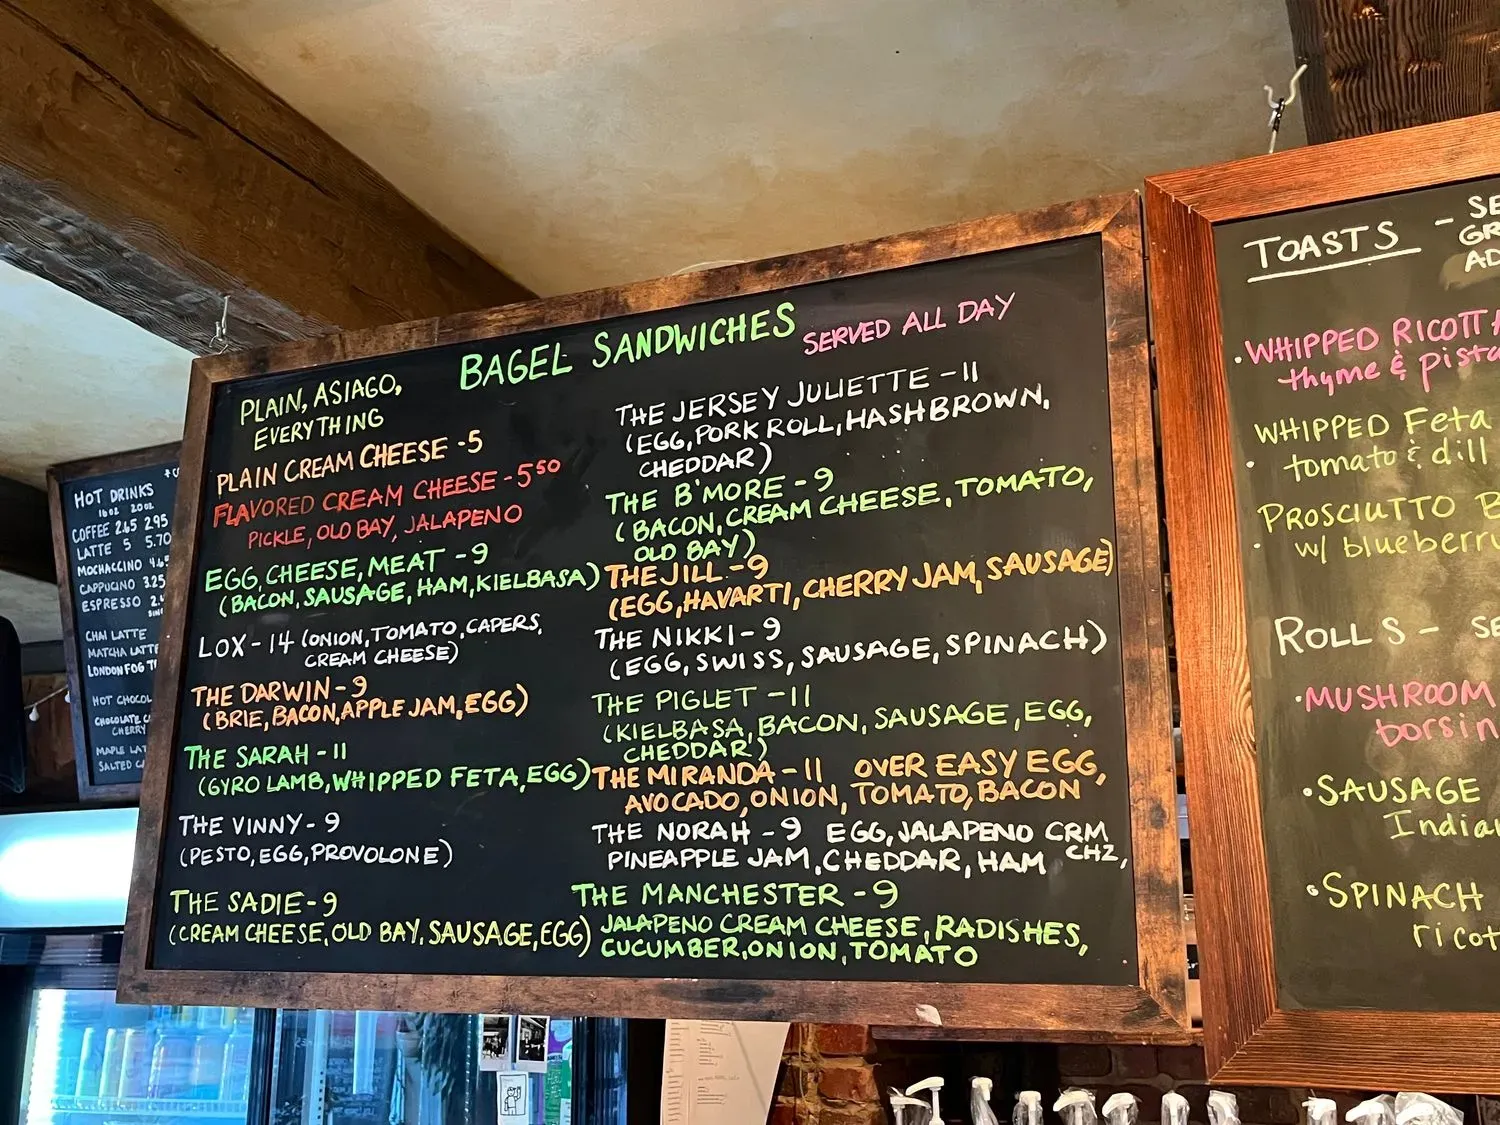 HOT DRINKS
16oz 20oz
COFFEE 2.65 2.95
LATTE 5 5.70
MOCHACCINO
CAPPUCINO 3.25
ESPRESSO
CHAI LATTE
MATCHA LATTE
LONDON FOG
HOT CHOCOL
CHOCOLATE
CHERRY
MAPLE LAT
SALTED
BAGEL SANDWICHES SERVED ALL DAY
PLAIN, ASIAGO,
EVERYTHING
PLAIN CREAM CHEESE -5
FLAVORED CREAM CHEESE -5 50
PICKLE, OLD BAY, JALAPENO
EGG, CHEESE, MEAT -9
(BACON, SAUSAGE, HAM, KIELBASA)
LOX -14 (ONION, TOMATO, CAPERS,
CREAM CHEESE)
THE DARWIN -9
(BRIE, BACON, APPLE JAM, EGG)
THE SARAH -11
(GYRO LAMB, WHIPPED FETA, EGG)
THE VINNY -9
(PESTO, EGG, PROVOLONE)
THE SADIE -9
(CREAM CHEESE, OLD BAY, SAUSAGE, EGG)
THE JERSEY JULIETTE -11
(EGG, PORK ROLL, HASHBROWN,
CHEDDAR)
THE B'MORE -9
(BACON, CREAM CHEESE, TOMATO,
OLD BAY)
THE JILL -9
(EGG, HAVARTI, CHERRY JAM, SAUSAGE)
THE NIKKI -9
(EGG, SWISS, SAUSAGE, SPINACH)
THE PIGLET -11
(KIELBASA, BACON, SAUSAGE, EGG,
CHEDDAR)
THE MIRANDA -11 OVER EASY EGG,
AVOCADO, ONION, TOMATO, BACON
THE NORAH -9 EGG, JALAPENO CRM
PINEAPPLE JAM, CHEDDAR, HAM CHZ,
THE MANCHESTER -9
JALAPENO CREAM CHEESE, RADISHES,
CUCUMBER, ONION, TOMATO
TOASTS - SE
GR
AD
·WHIPPED RICOTTA
thyme & pista
WHIPPED Feta
· tomato & dill
PROSCIUTTO B
· w/ blueberry
ROLLS - SE
·MUSHROOM
borsin
·SAUSAGE
India
·SPINACH
ricot